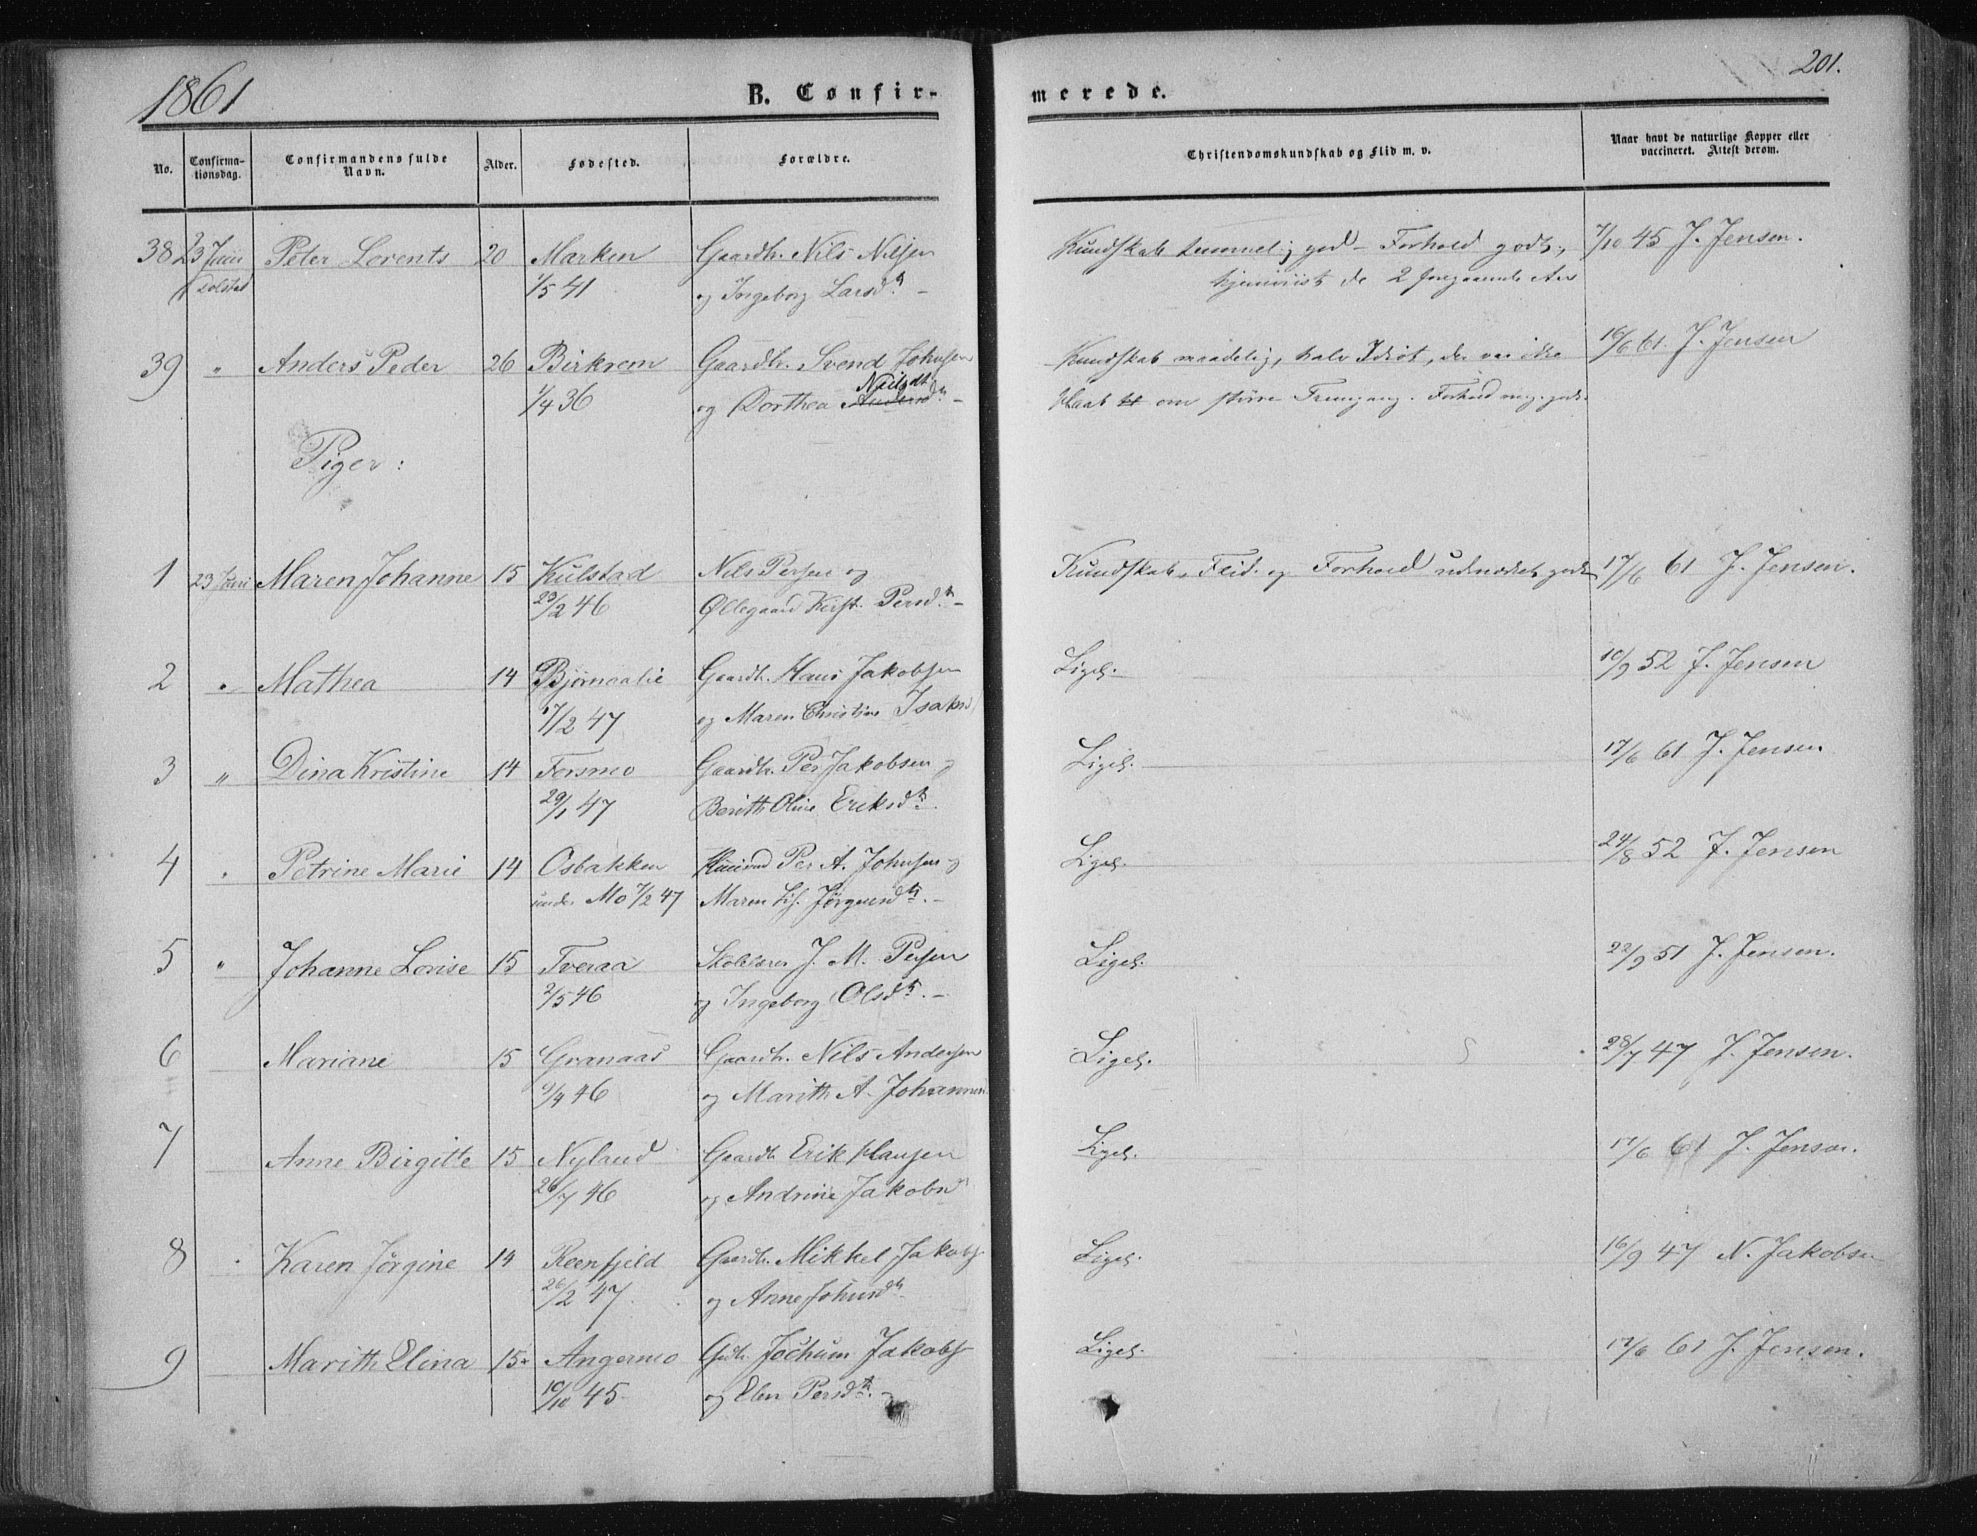 1861
B. Confir-
merede.
201.
No.
Confirma-
tionsdag.
Confirmandens fulde
Navn.
Alder.
Fødested.
Forældre.
Christendomskundskab og Flid m. v.
Naar havt de naturlige Kopper eller
vaccineret. Attest derom.
38 23 Juni Peter Lorents 20 Marken Gaardbr. Nils Nilsen Kundskab temmelig god - Forhold godt, 7/10 45 J. Jensen.
Dolstad 1/5 41 og Ingeborg Larsdtr. - de 2 foregaaende Aar
39 " Anders Peder 26 Birkrem Gaardbr. Svend Johnsen Kundskab maadelig, halv Idiot, der var ikke 16/6 61. J. Jensen
1/4 36 og Dorthea Nielsdtr - Haab om større Fremgang. Forhold meg. godt.
Piger:
1 23 Juni Maren Johanne 15 Kulstad Nils Persen og Kundskab, Flid og Forhold udmærket godt 17/6 61 J. Jensen.
23/2 46 Øllegaard Kirst. Persdtr. -
2 " Mathea 14 Bjørnaalie Gaardbr. Hans Jakobsen Ligel. 10/9 52 J. Jensen
17/2 47 og Maren Christine Isaksd
3 " Dina Kristine 14 Fersmo Gaardbr. Per Jakobsen og Ligel. 17/6 61 J. Jensen.
29/1 47 Berith Oline Eriksdtr.
4 " Petrine Marie 14 Osbakken Huusmd Per A. Johnsen og Ligel. 24/8 52 J. Jensen
under Mo 7/2 47 Maren Lis. Jørgensdtr. -
5 " Johanne Lovise 15 Tveraa Skolelærer J. M. Persen Ligel. 22/9 51 J. Jensen.
2/5 46 og Ingeborg Olsdtr. -
6 Mariane 15 Granaas Gaardbr. Nils Andersen Ligel. 28/7 47 J. Jensen.
9/4 46 og Marith A. Johannes
7 Anne Birgitte 15 Nyland Gaardb. Erik Hansen Ligel. 17/6 61 J. Jensen.
26/7 46 og Andrine Jakobsd
8 " Karen Jørgine 14 Reenfjeld Gaardbr. Mikkel Jakobs Ligel. 16/9 47 N. Jakobsen
26/2 47. og Anne Johnsdtr.
9 Marith Elina 15 Angermo Gbr. Jochum Jakobs Ligel. 17/6 61 J. Jensen.
10/10 45. og Elen Persdtr. -